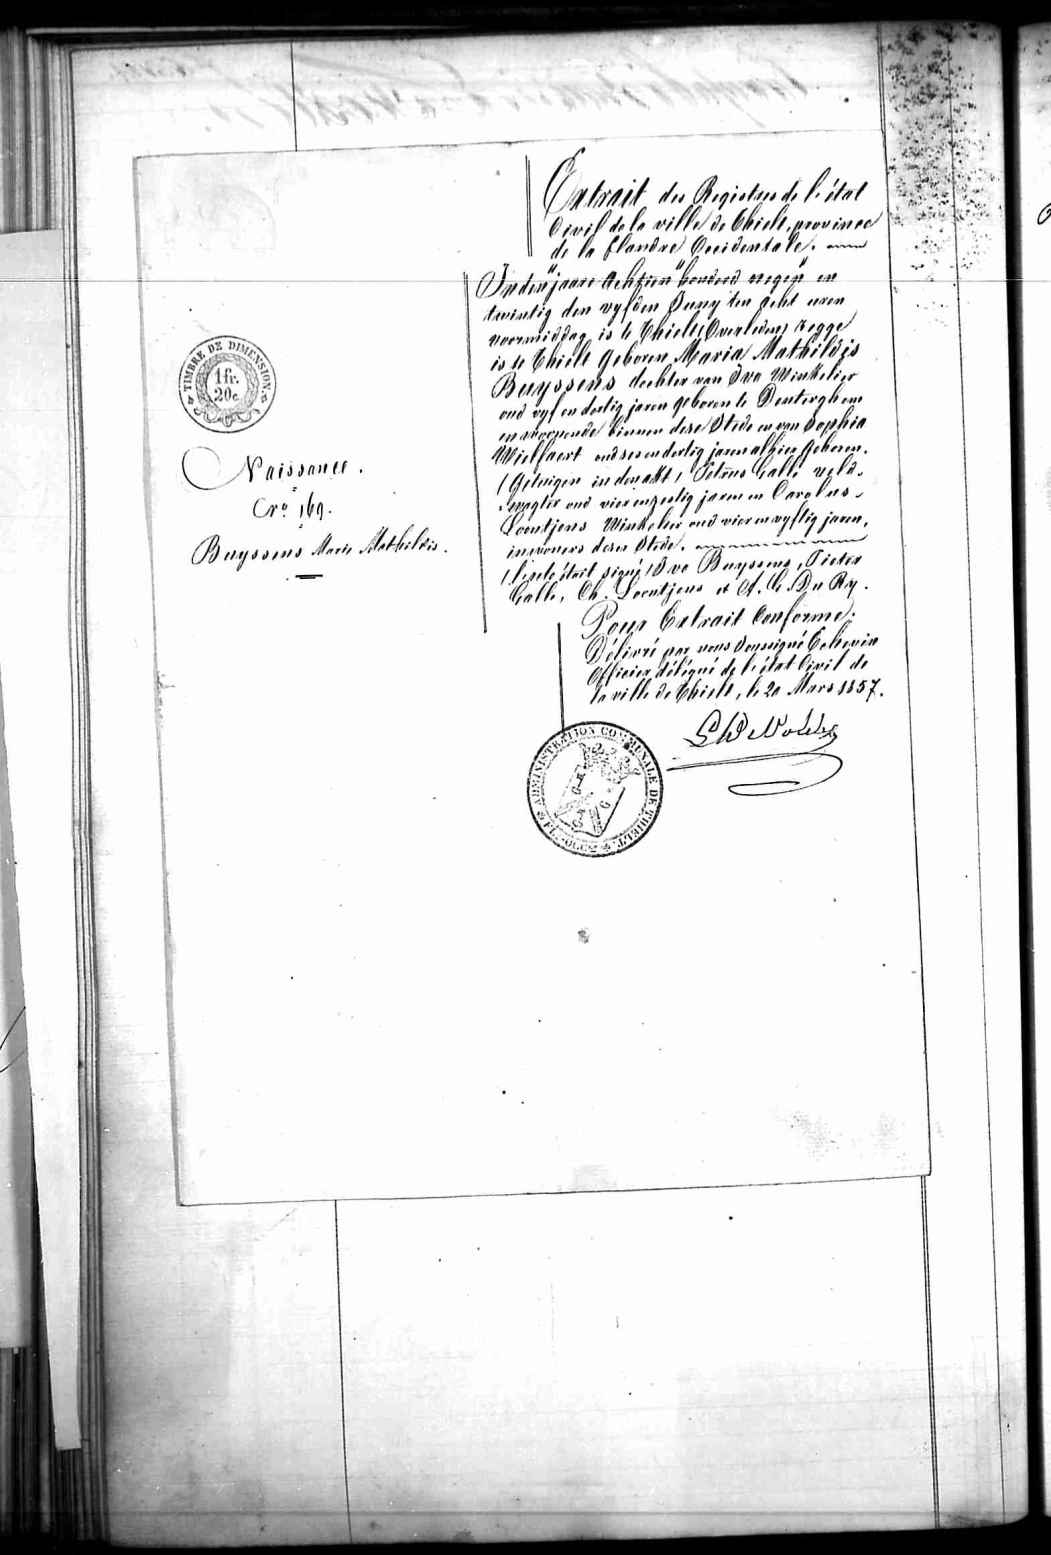 TIMBRE DE DIMENSION
1 fr.
20 c.
Naissance.
Nro 169.
Buyssens Marie Mathildis.
Extrait des Registres de l'état
Civil de la ville de Thielt, province
de la flandre Occidentale.
In den "jaare Achtien" honderd negen" en
twintig den vyfden Juny ten acht uren
voormiddag is te Thielt (Overleden) zegge
is te Thielt geboren Maria Mathildis
Buyssens dochter van Ivo Winkelier
oud vyf en dertig jaren geboren te Denterghem
en woonende binnen deze Stede en van Sophia
Wielfaert oud ses en dertig jaren alhier Geboren.
(Getuigen in den akt) Petrus Galle veld-
wagter oud vier en zestig jaren en Carolus
Loontjens Winkelier oud vier en vyftig jaren,
inwoners deser Stede.
(l'acte était signé) Ivo Buyssens, Pieter
Galle, Ch. Loontjens et A. C. Du Ry.
Pour Extrait Conforme.
Délivré par nous Soussigné Echevin
Officier délégué de l'état Civil de
la ville de Thielt, le 20 Mars 1857.
ADMINISTRATION COMMUNALE DE THIELT
FL. OCC.